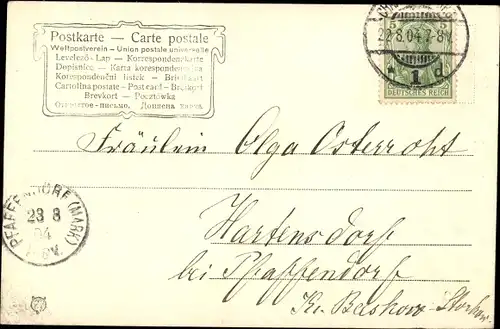 Postkarte — Carte postale
Weltpostverein - Union postale universelle
Levelező-Lap — Korrespondenzkarte
Dopisnice — Karta korespondencyjna
Korespondenční lístek — Briefkaart
Cartolina postale - Post card - Brefkort
Brevkort — Pocztówka
Открытое письмо. Дописна карта.
22.8.04.7-8V.
1 d
DEUTSCHES REICH
Fräulein Olga Osterroht
Hartensdorf
bei Pfaffendorf
Kr. Beskow-Storkow.
PFAFFENDORF (MARK)
23 8
04